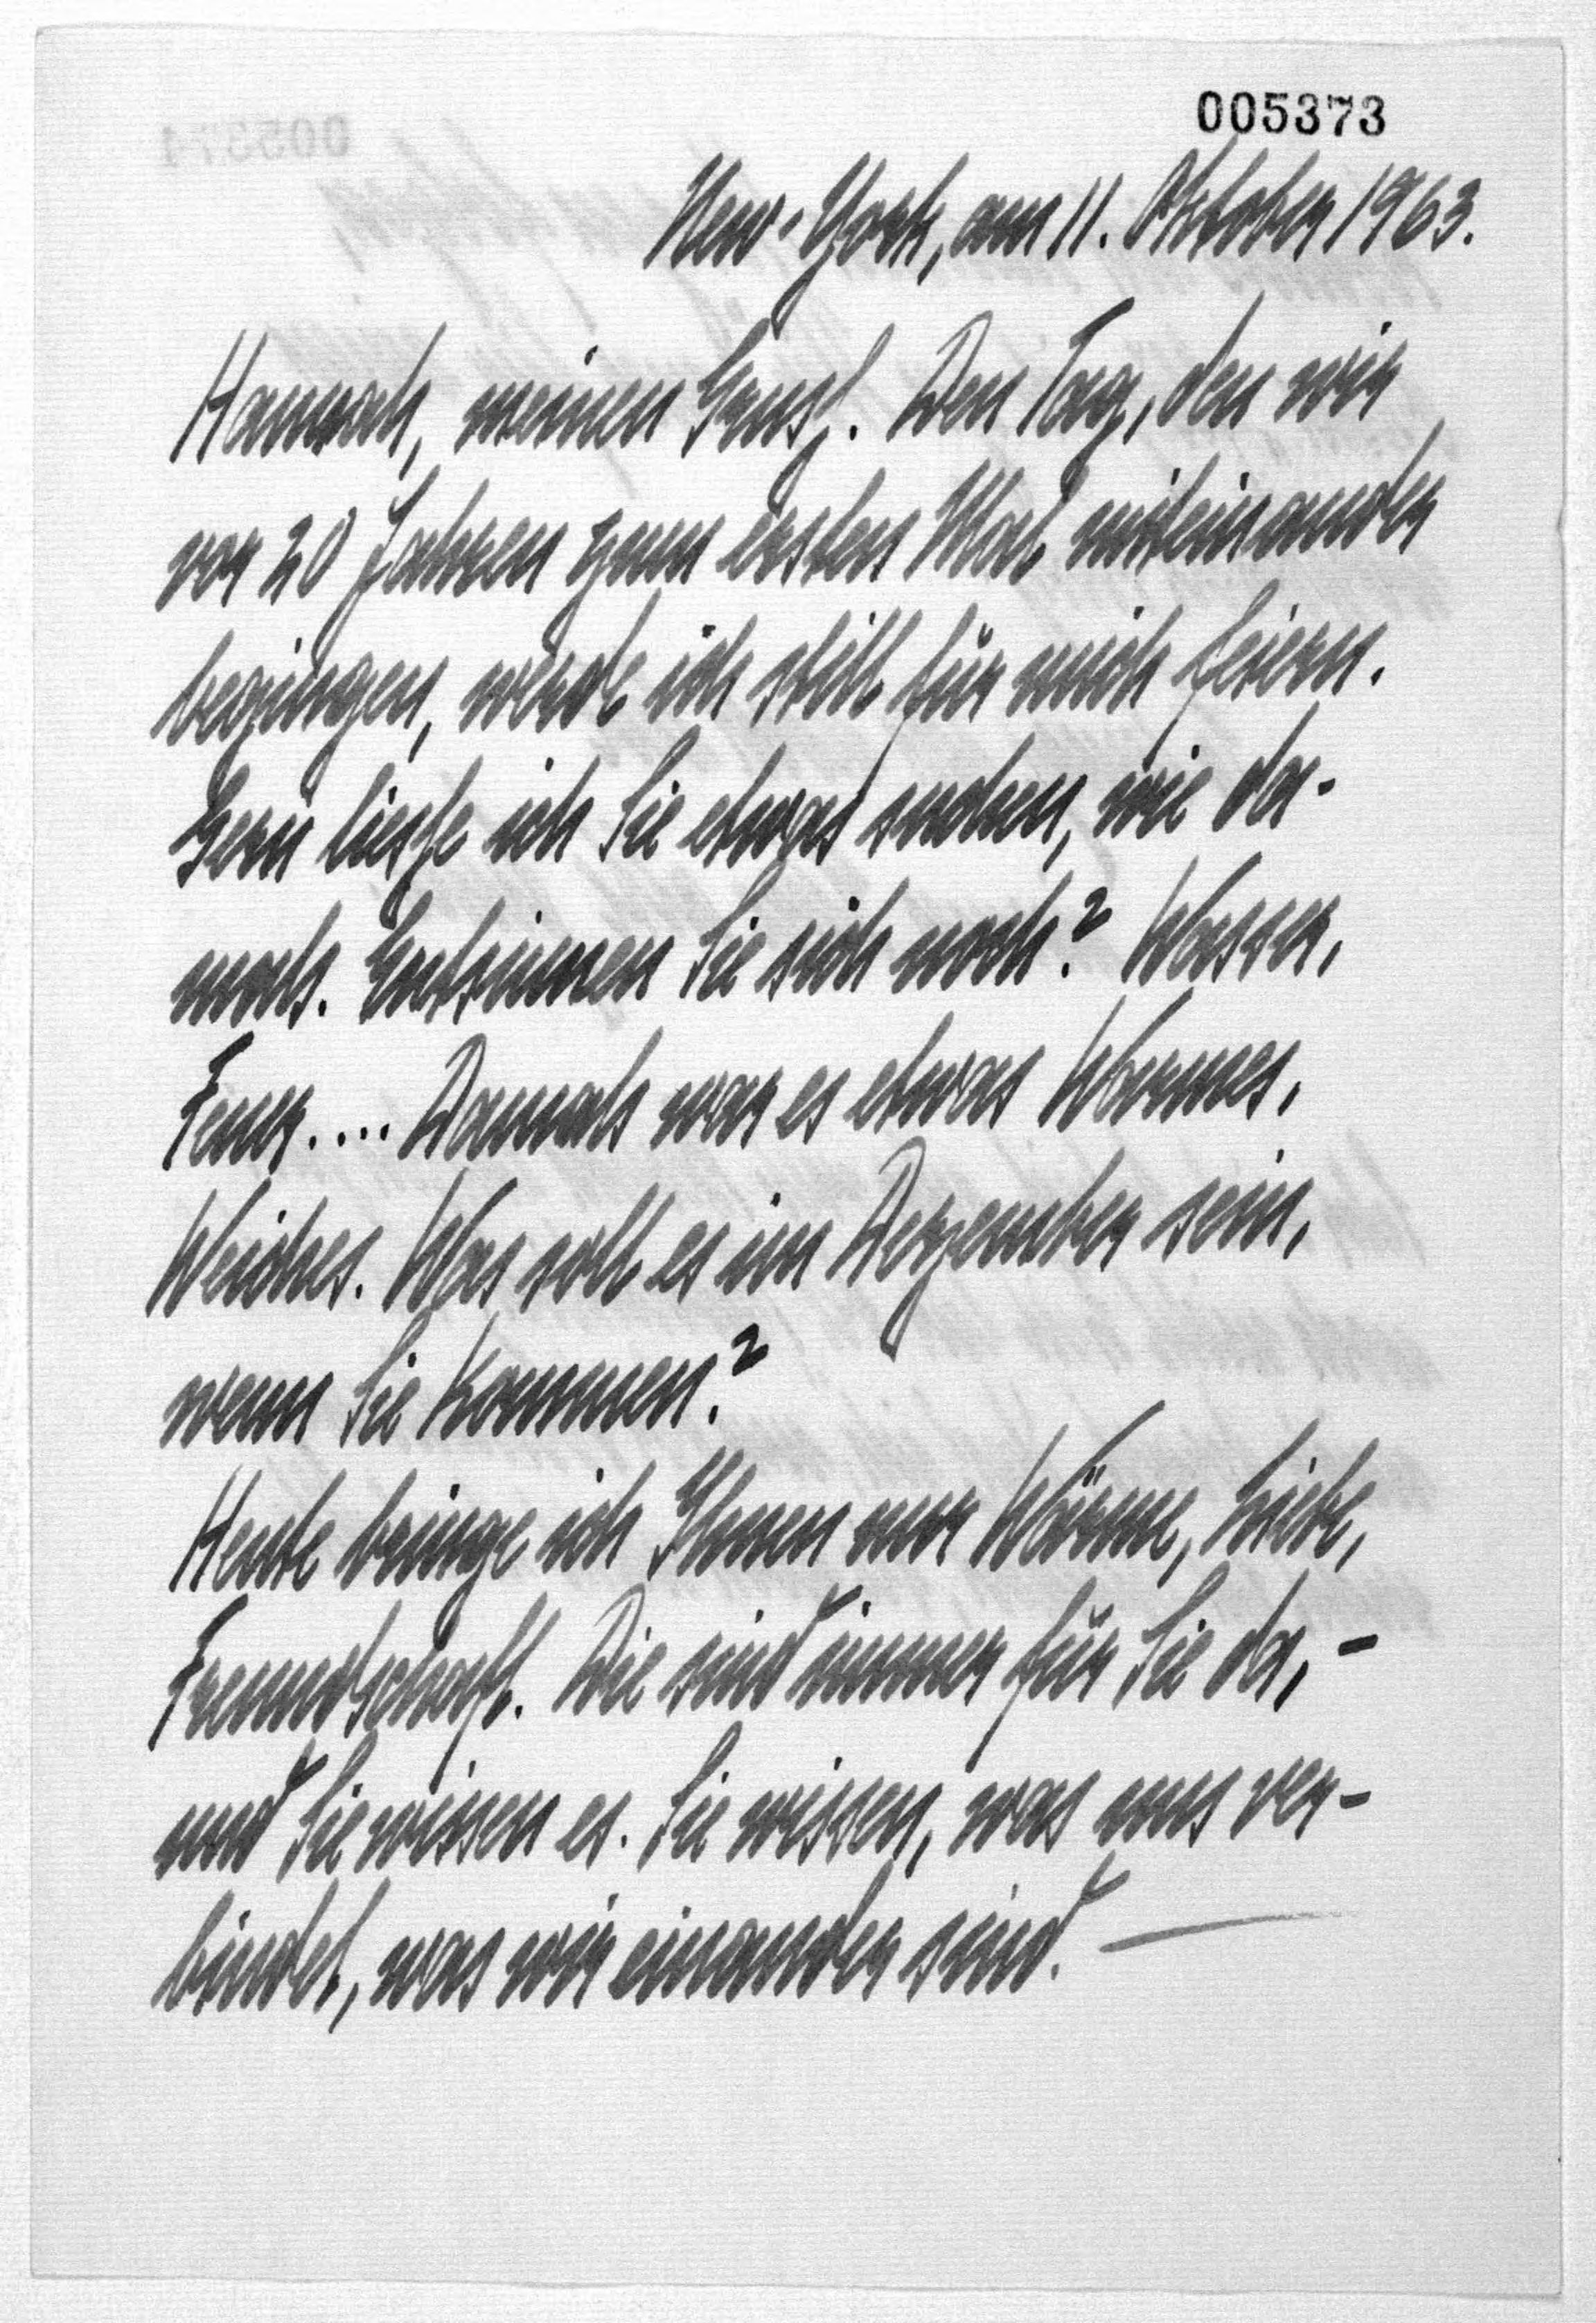 005373
New-York, am 11. Oktober 1963.
Hannah, meinen Gruß. Den Tag, den wir
vor 20 Jahren zum ersten Mal miteinander
begingen, werde ich still für mich feiern.
Gern ließe ich Sie etwas suchen, wie da-
mals. Entsinnen Sie sich noch? Wasser,
Feuer.... Damals war es etwas Warmes,
Weiches. Was soll es im Dezember sein,
wenn Sie kommen?
Heute bringe ich Ihnen nur Wärme, Liebe,
Freundschaft. Die sind immer für Sie da, -
und Sie wissen es. Sie wissen, was uns ver-
bindet, was wir einander sind. —